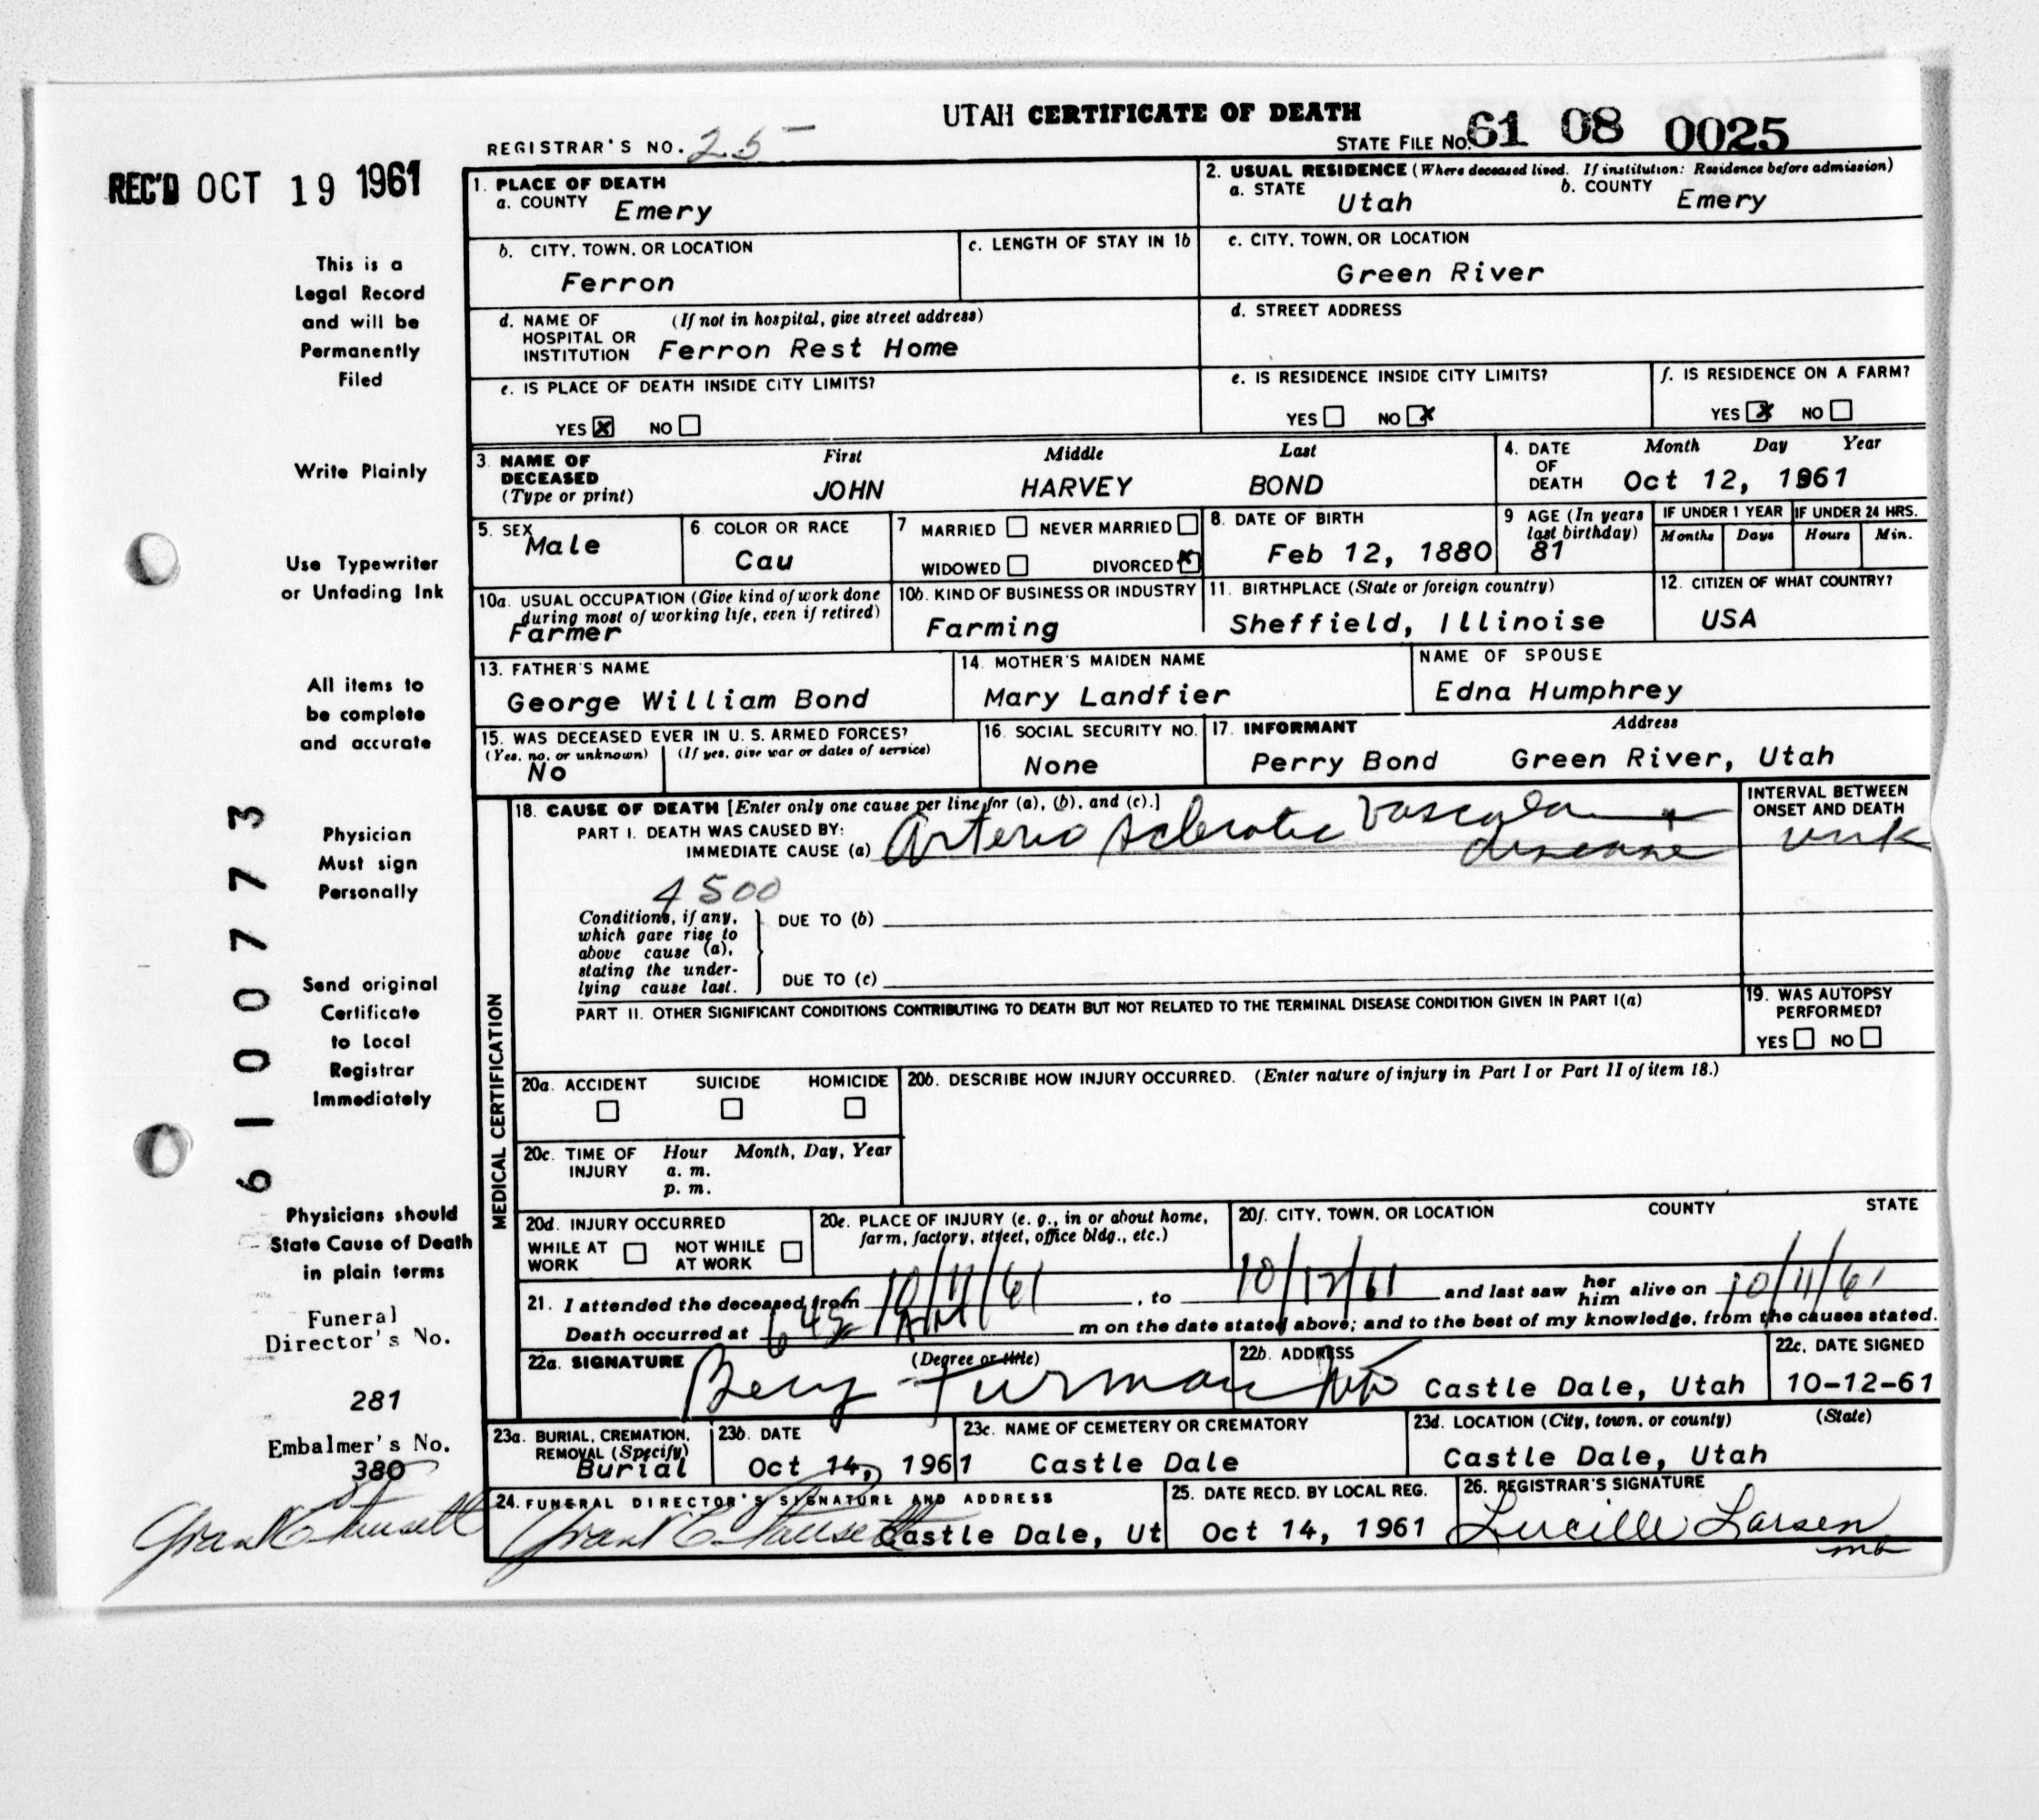 UTAH CERTIFICATE OF DEATH
REGISTRAR'S NO. 25
STATE FILE NO. 61 08 0025
REC'D OCT 19 1961
1. PLACE OF DEATH
a. COUNTY Emery
2. USUAL RESIDENCE (Where deceased lived. If institution: Residence before admission)
a. STATE Utah b. COUNTY Emery
b. CITY, TOWN, OR LOCATION
Ferron
c. LENGTH OF STAY IN 1b
c. CITY, TOWN, OR LOCATION
Green River
d. NAME OF HOSPITAL OR INSTITUTION (If not in hospital, give street address)
Ferron Rest Home
d. STREET ADDRESS
e. IS PLACE OF DEATH INSIDE CITY LIMITS?
YES X NO
e. IS RESIDENCE INSIDE CITY LIMITS?
YES NO X
f. IS RESIDENCE ON A FARM?
YES X NO
3. NAME OF DECEASED (Type or print)
First Middle Last
JOHN HARVEY BOND
4. DATE OF DEATH Month Day Year
Oct 12, 1961
5. SEX
Male
6. COLOR OR RACE
Cau
7 MARRIED NEVER MARRIED
WIDOWED DIVORCED X
8. DATE OF BIRTH
Feb 12, 1880
9 AGE (In years last birthday)
81
IF UNDER 1 YEAR
Months Days
IF UNDER 24 HRS.
Hours Min.
10a. USUAL OCCUPATION (Give kind of work done during most of working life, even if retired)
Farmer
10b. KIND OF BUSINESS OR INDUSTRY
Farming
11. BIRTHPLACE (State or foreign country)
Sheffield, Illinoise
12. CITIZEN OF WHAT COUNTRY?
USA
13. FATHER'S NAME
George William Bond
14. MOTHER'S MAIDEN NAME
Mary Landfier
NAME OF SPOUSE
Edna Humphrey
15. WAS DECEASED EVER IN U. S. ARMED FORCES?
(Yes, no, or unknown) (If yes, give war or dates of service)
No
16. SOCIAL SECURITY NO.
None
17. INFORMANT Address
Perry Bond Green River, Utah
MEDICAL CERTIFICATION
18. CAUSE OF DEATH [Enter only one cause per line for (a), (b), and (c).]
PART I. DEATH WAS CAUSED BY:
IMMEDIATE CAUSE (a) Arterio Sclerotic Vascular disease
INTERVAL BETWEEN ONSET AND DEATH
unk
4500
Conditions, if any, which gave rise to above cause (a), stating the underlying cause last.
DUE TO (b)
DUE TO (c)
PART II. OTHER SIGNIFICANT CONDITIONS CONTRIBUTING TO DEATH BUT NOT RELATED TO THE TERMINAL DISEASE CONDITION GIVEN IN PART I(a)
19. WAS AUTOPSY PERFORMED?
YES NO
20a. ACCIDENT SUICIDE HOMICIDE
20b. DESCRIBE HOW INJURY OCCURRED. (Enter nature of injury in Part I or Part II of item 18.)
20c. TIME OF INJURY Hour Month, Day, Year
a. m.
p. m.
20d. INJURY OCCURRED
WHILE AT WORK NOT WHILE AT WORK
20e. PLACE OF INJURY (e. g., in or about home, farm, factory, street, office bldg., etc.)
20f. CITY, TOWN, OR LOCATION COUNTY STATE
21. I attended the deceased from 10/11/61, to 10/12/61 and last saw her him alive on 10/11/61
Death occurred at 6 45 AM m on the date stated above; and to the best of my knowledge, from the causes stated.
22a. SIGNATURE (Degree or title)
Turman MD
22b. ADDRESS
Castle Dale, Utah
22c. DATE SIGNED
10-12-61
23a. BURIAL, CREMATION, REMOVAL (Specify)
Burial
23b. DATE
Oct 14, 1961
23c. NAME OF CEMETERY OR CREMATORY
Castle Dale
23d. LOCATION (City, town, or county) (State)
Castle Dale, Utah
24. FUNERAL DIRECTOR'S SIGNATURE AND ADDRESS
Castle Dale, Ut
25. DATE RECD. BY LOCAL REG.
Oct 14, 1961
26. REGISTRAR'S SIGNATURE
Lucille Larsen
This is a
Legal Record
and will be
Permanently
Filed
Write Plainly
Use Typewriter
or Unfading Ink
All items to
be complete
and accurate
Physician
Must sign
Personally
Send original
Certificate
to Local
Registrar
Immediately
Physicians should
State Cause of Death
in plain terms
Funeral
Director's No.
281
Embalmer's No.
380
6100773